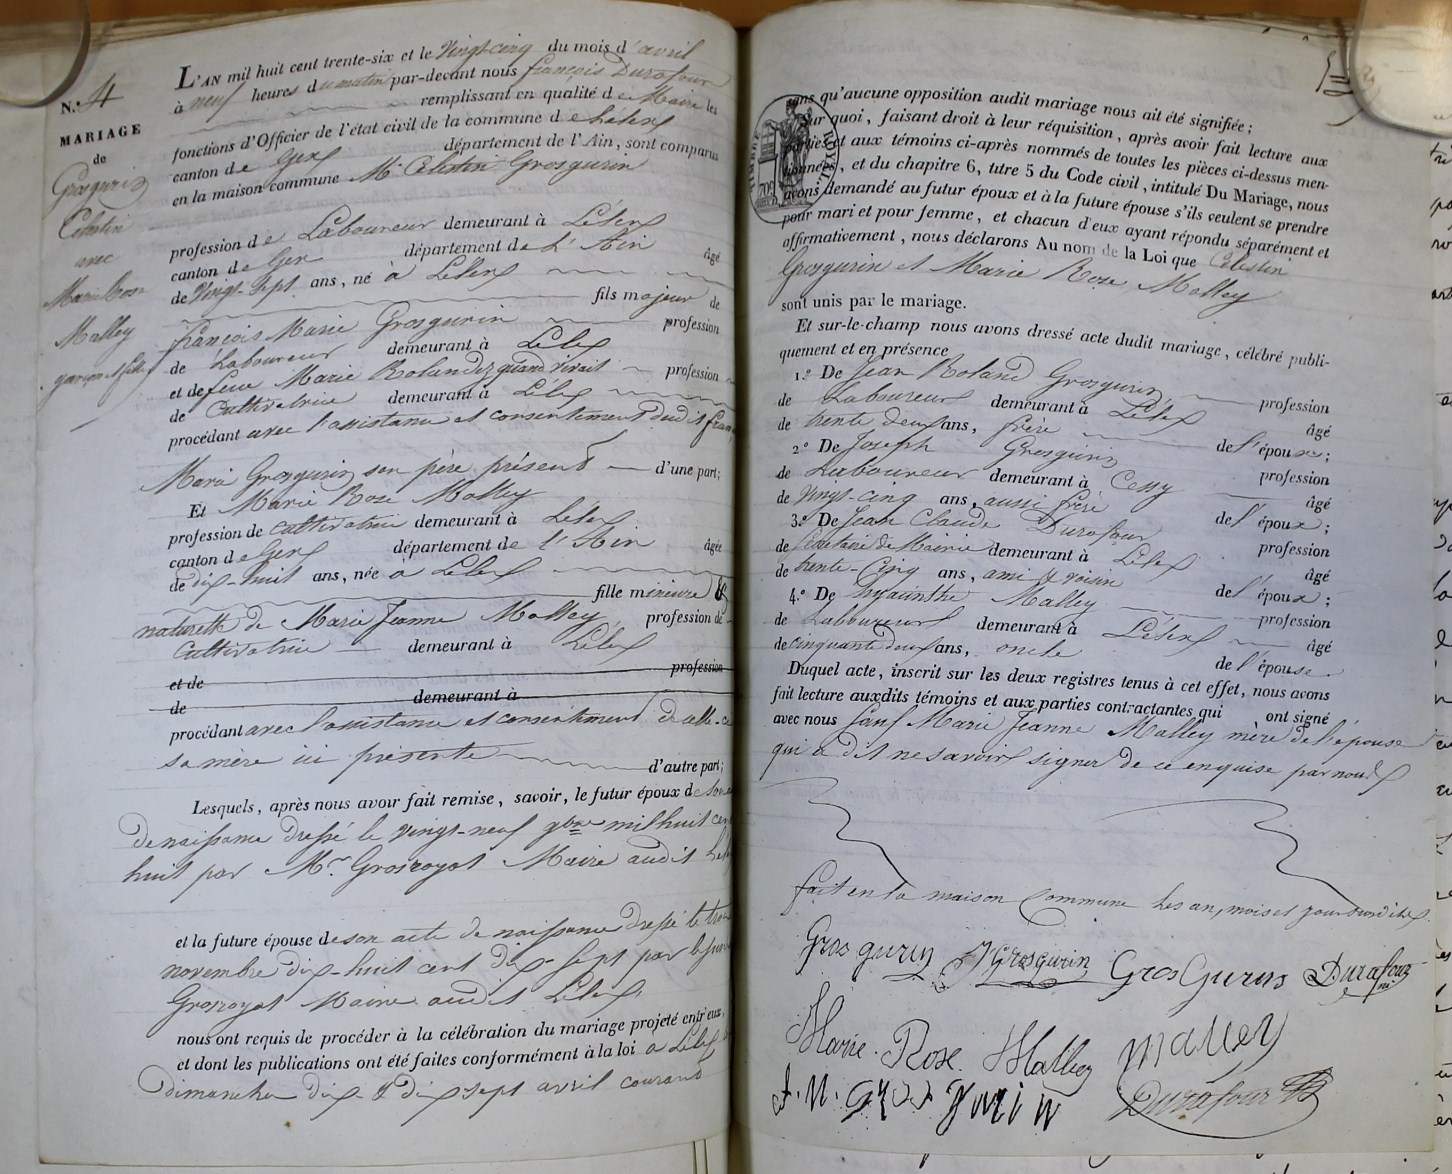 N.o 4
MARIAGE
de
Grosgurin
Célestin
avec
Marie Rose
Malley
garçon et fille
L'AN mil huit cent trente-six et le Vingt-cinq du mois d'avril
à neuf heures du matin par-devant nous françois Durafour
remplissant en qualité de Maire les
fonctions d'Officier de l'état civil de la commune de Lelex
canton de Gex département de l'Ain, sont comparus
en la maison commune Mr Célestin Grosgurin
profession de Laboureur demeurant à Lélex
canton de Gex département de L'Ain âgé
de Vingt-Sept ans, né à Lelex
fils majeur de
françois Marie Grosgurin profession
de Laboureur demeurant à Lelex
et de feue Marie Rolandez quand vivait profession
de Cultivatrice demeurant à Lélex
procédant avec l'assistance et consentement dudit fran
Marie Grosgurin son père présent d'une part;
Et Marie Rose Malley
profession de Cultivatrice demeurant à Lelex
canton de Gex département de l'Ain âgée
de dix-huit ans, née à Lelex
fille mineure &
naturelle de Marie Jeanne Malley, profession de
Cultivatrice demeurant à Lélex
et de profession
de demeurant à
procédant avec l'assistance et consentement de celle-ci
sa mère ici présente d'autre part;
Lesquels, après nous avoir fait remise, savoir, le futur époux de son
de naissance dressé le vingt-neuf 9bre mil huit cent
huit par Mr. Grosroyat Maire audit Lelex
et la future épouse de son acte de naissance dressé le trois
novembre dix-huit cent dix-sept par le
Grosroyat Maire audit Lélex,
nous ont requis de procéder à la célébration du mariage projeté entr'eux,
et dont les publications ont été faites conformément à la loi à Lélex
dimanches dix & dix sept avril courant
sans qu'aucune opposition audit mariage nous ait été signifiée;
Sur quoi, faisant droit à leur réquisition, après avoir fait lecture aux
parties et aux témoins ci-après nommés de toutes les pièces ci-dessus men-
tionnées, et du chapitre 6, titre 5 du Code civil, intitulé Du Mariage, nous
avons demandé au futur époux et à la future épouse s'ils veulent se prendre
pour mari et pour femme, et chacun d'eux ayant répondu séparément et
affirmativement, nous déclarons Au nom de la Loi que Célestin
Grosgurin et Marie Roze Malley
sont unis par le mariage.
Et sur-le-champ nous avons dressé acte dudit mariage, célébré publi-
quement et en présence
1.o De Jean Roland Grosgurin profession
de Laboureur demeurant à Lélex âgé
de trente deux ans, frère de l'époux;
2.o De Joseph Grosgurin profession
de Laboureur demeurant à Cessy âgé
de Vingt-cinq ans, aussi frère de l'époux;
3.o De Jean Claude Durafour profession
de Secrétaire de Mairie demeurant à Lélex âgé
de trente-Cinq ans, ami & voisin de l'époux;
4.o De hyacinthe Malley profession
de Labboureur demeurant à Lélex âgé
de cinquante deux ans, oncle de l'épouse
Duquel acte, inscrit sur les deux registres tenus à cet effet, nous avons
fait lecture auxdits témoins et aux parties contractantes qui ont signé
avec nous Sauf Marie Jeanne Malley mère de l'épouse
qui a dit ne savoir signer de ce enquise par nous
fait en la maison Commune les an, mois et jour susdits.
Gros gurin J Grosgurin GrosGurin Durafour
Marie. Rose. Malley Malley
f. M. Gros Gurin Durafour